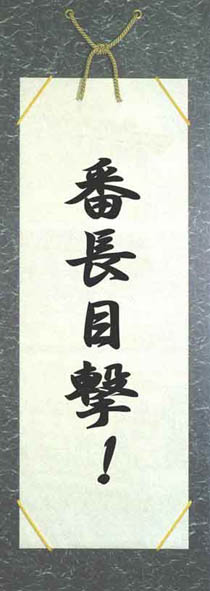 番長目撃!